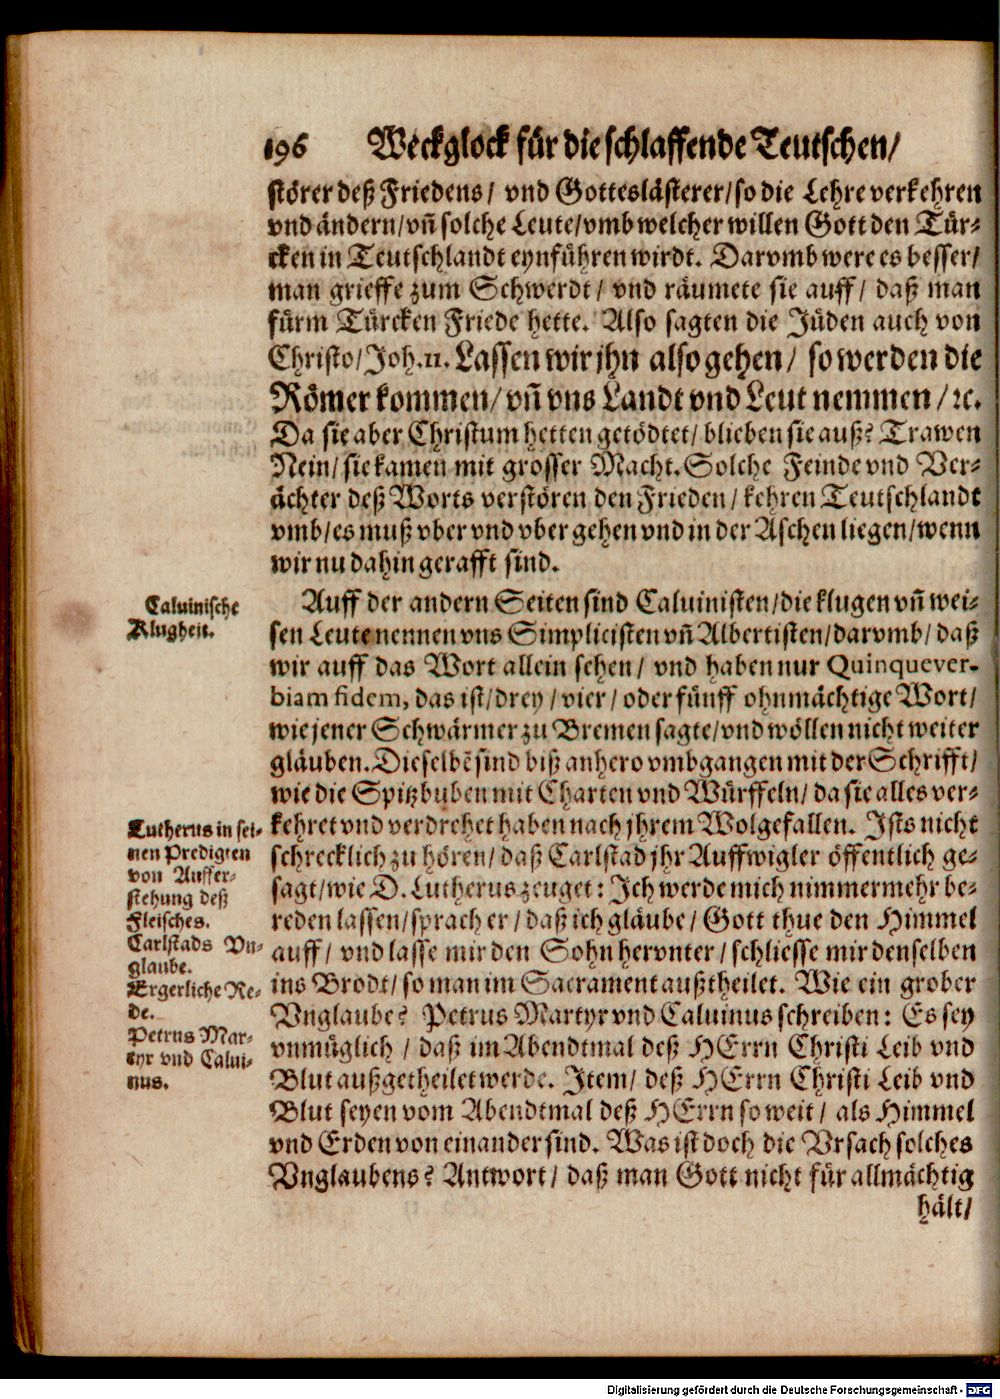 196 Weckglock für die schlaffende Teutschen/
störer deß Friedens/ vnd Gotteslästerer/ so die Lehre verkehren
vnd ändern/ vñ solche Leute/ vmb welcher willen Gott den Tür-
cken in Teutschlandt eynführen wirdt. Darvmb were es besser/
man grieffe zum Schwerdt/ vnd räumete sie auff/ daß man
fürm Türcken Friede hette. Also sagten die Jüden auch von
Christo/ Joh. 11. Lassen wir jhn also gehen/ so werden die
Römer kommen/ vñ vns Landt vnd Leut nemmen/ ꝛc.
Da sie aber Christum hetten getödtet/ blieben sie auß? Trawen
Nein/ sie kamen mit grosser Macht. Solche Feinde vnd Ver-
ächter deß Worts verstören den Frieden/ kehren Teutschlandt
vmb/ es muß vber vnd vber gehen vnd in der Aschen liegen/ wenn
wir nu dahin gerafft sind.
Caluinische
Klugheit.
Auff der andern Seiten sind Caluinisten/ die klugen vñ wei-
sen Leute nennen vns Simplicisten vñ Albertisten/ darvmb/ daß
wir auff das Wort allein sehen/ vnd haben nur Quinquever-
biam fidem, das ist/ drey/ vier/ oder fünff ohnmächtige Wort/
wie jener Schwärmer zu Bremen sagte/ vnd wöllen nicht weiter
gläuben. Dieselbẽ sind biß anhero vmbgangen mit der Schrifft/
wie die Spitzbuben mit Charten vnd Würffeln/ da sie alles ver-
kehret vnd verdrehet haben nach jhrem Wolgefallen. Ists nicht
schrecklich zu hören/ daß Carlstad jhr Auffwigler öffentlich ge-
sagt/ wie D. Lutherus zeuget: Ich werde mich nimmermehr be-
reden lassen/ sprach er/ daß ich gläube/ Gott thue den Himmel
auff/ vnd lasse mir den Sohn hervnter/ schliesse mir denselben
ins Brodt/ so man im Sacrament außtheilet. Wie ein grober
Vnglaube? Petrus Martyr vnd Caluinus schreiben: Es sey
vnmüglich/ daß im Abendtmal deß HErrn Christi Leib vnd
Blut außgetheilet werde. Item/ deß HErrn Christi Leib vnd
Blut seyen vom Abendtmal deß HErrn so weit/ als Himmel
vnd Erden von einander sind. Was ist doch die Vrsach solches
Vnglaubens? Antwort/ daß man Gott nicht für allmächtig
hält/
Lutherus in sei-
nen Predigten
von Auffer-
stehung deß
Fleisches.
Carlstads Vn-
glaube.
Ergerliche Re-
de.
Petrus Mar-
tyr vnd Calui-
nus.
Digitalisierung gefördert durch die Deutsche Forschungsgemeinschaft - DFG